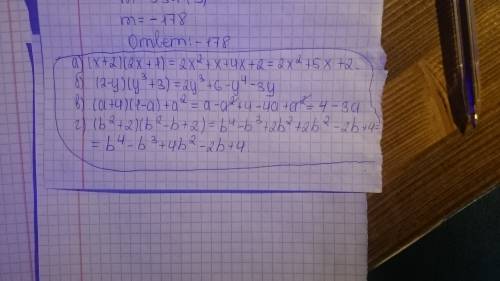 m = -178
Ответ: -178
а) (x+2)(2x+1) = 2x²+x+4x+2 = 2x²+5x+2
б) (2-y)(y³+3) = 2y³+6-y⁴-3y
в) (a+4)(1-a)+a² = a-a²+4-4a+a² = 4-3a
г) (b²+2)(b²-b+2) = b⁴-b³+2b²+2b²-2b+4=
= b⁴-b³+4b²-2b+4